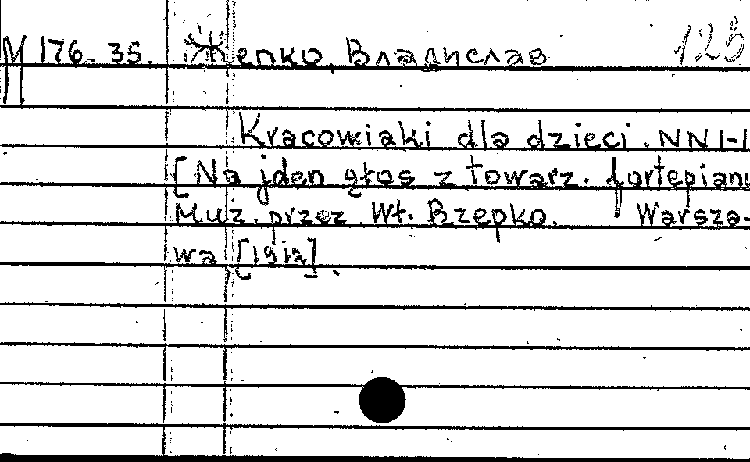 М 176-35. Жепко, Владислав 123
Kracowiaki dla dzieci. NN 1-1
[Na jden głos z towarz. fortepianu
Muz. przez Wł. Rzepko. Warsza-
wa, [1912].